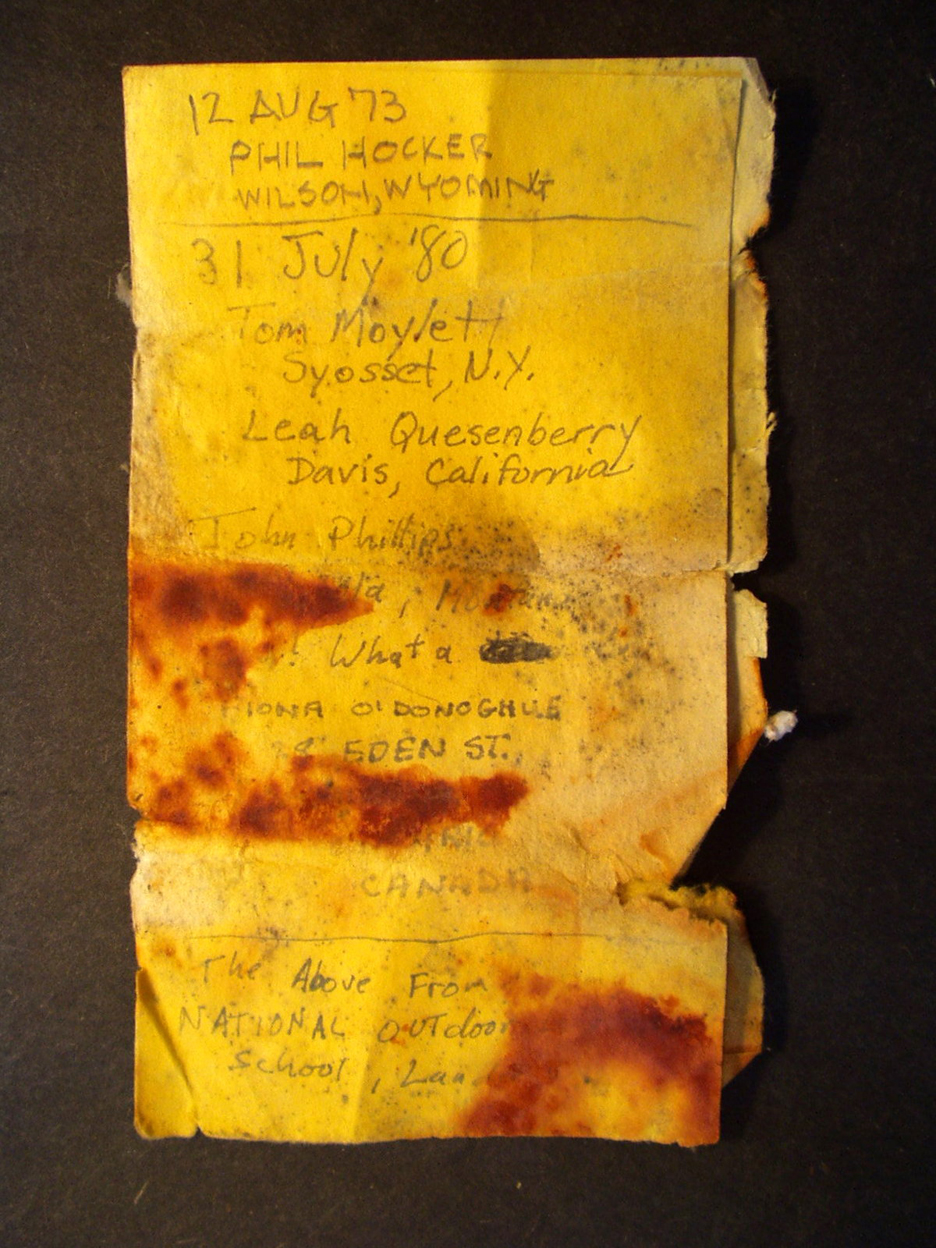 12 AUG 73
PHIL HOCKER
WILSON, WYOMING
31 July '80
Tom Moylett
Syosset, N.Y.
Leah Quesenberry
Davis, California
John Phillips
! What a
FIONA O'DONOGHUE
EDEN ST.,
CANADA
The Above From
NATIONAL OUTdoor
School,